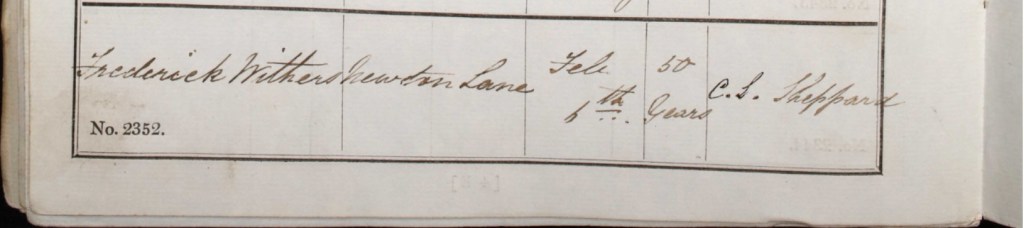 Frederick Withers Newton Lane Feb 50
6th Years C. S. Sheppard
No. 2352.